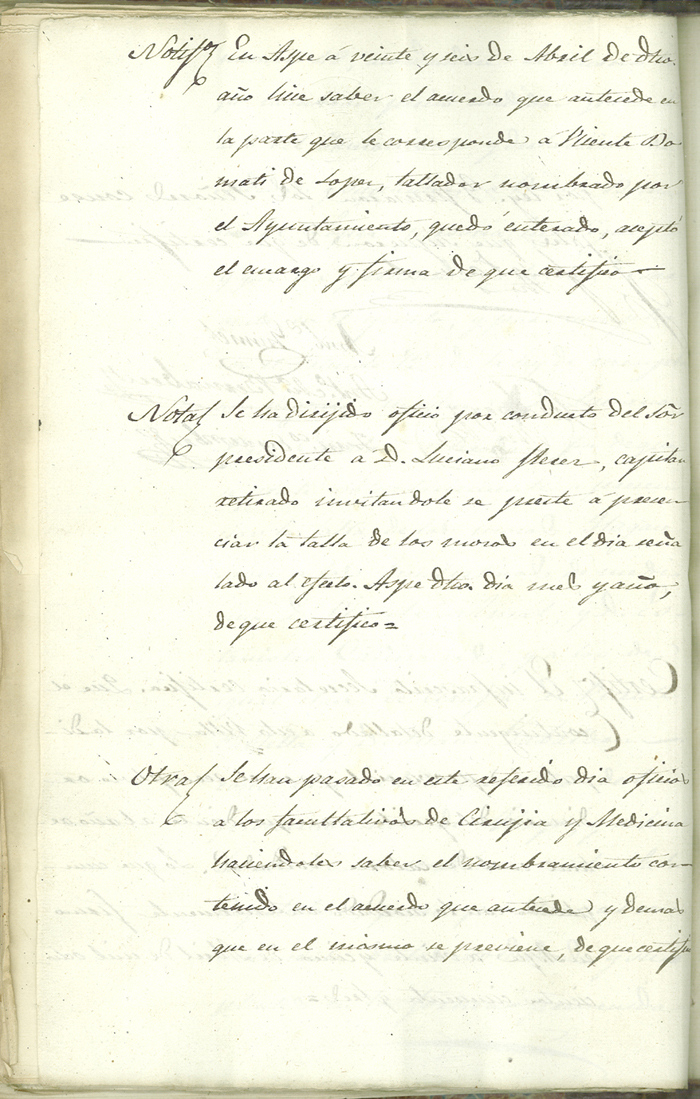 Notifon En Aspe á veinte y seis de Abril de dho.
año hice saber el acuerdo que antecede en
la parte que le corresponde á Vicente Bo
mati de Lopez, tallador nombrado por
el Ayuntamiento, quedó enterado, aceptó
el encargo y firma de que certifico
Nota Se ha dirijido oficio por conducto del Sōr
presidente á D. Luciano capitan
retirado invitandole se preste á presen
ciar la talla de los mozos en el dia seña
lado al efecto. Aspe dho. dia mes y año,
de que certifico=
Otra Se han pasado en este referido dia oficios
a los facultativos de Cirujia y Medicina
haciendoles saber el nombramiento con
tenido en el acuerdo que antecede y demas
que en el mismo se previene, de que certifico